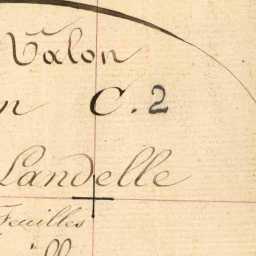 Vâlon
n C. 2
Landelle
Feuilles